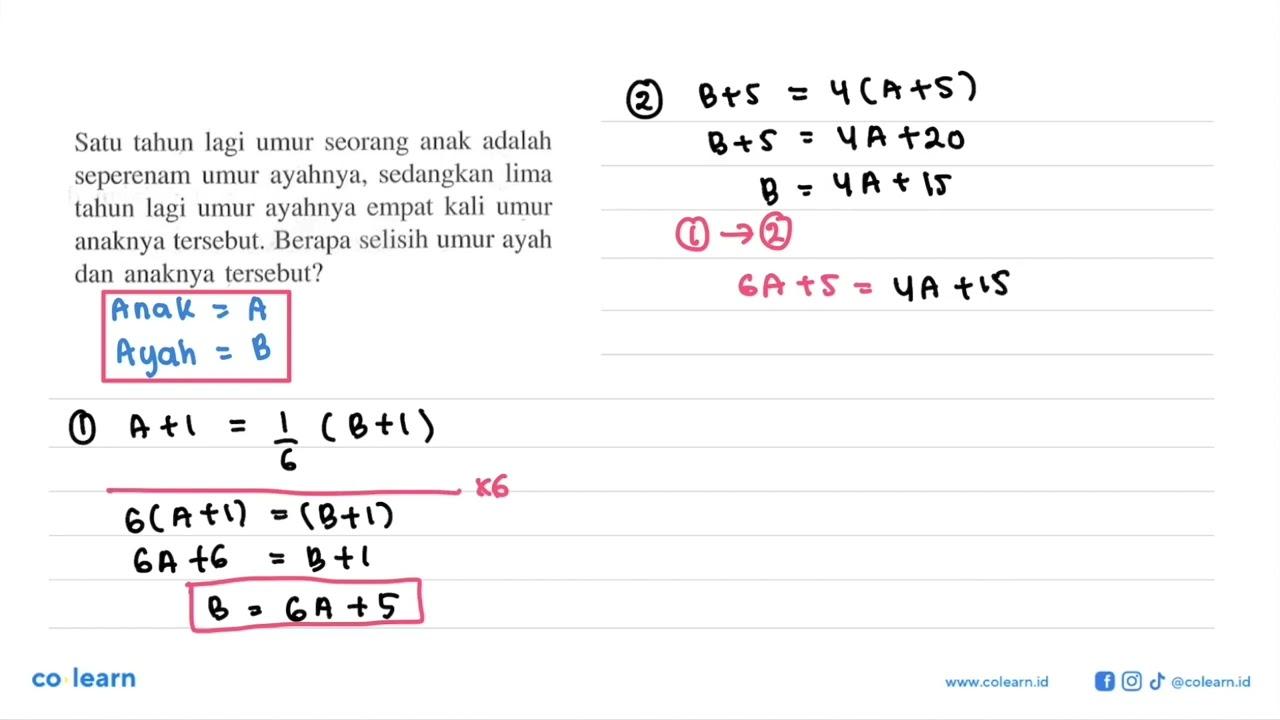 Satu tahun lagi umur seorang anak adalah
seperenam umur ayahnya, sedangkan lima
tahun lagi umur ayahnya empat kali umur
anaknya tersebut. Berapa selisih umur ayah
dan anaknya tersebut?
Anak = A
Ayah = B
① A+1 = 1/6 (B+1)
×6
6(A+1) = (B+1)
6A+6 = B+1
B = 6A+5
② B+5 = 4(A+5)
B+5 = 4A+20
B = 4A+15
① → ②
6A+5 = 4A+15
co learn
www.colearn.id
@colearn.id